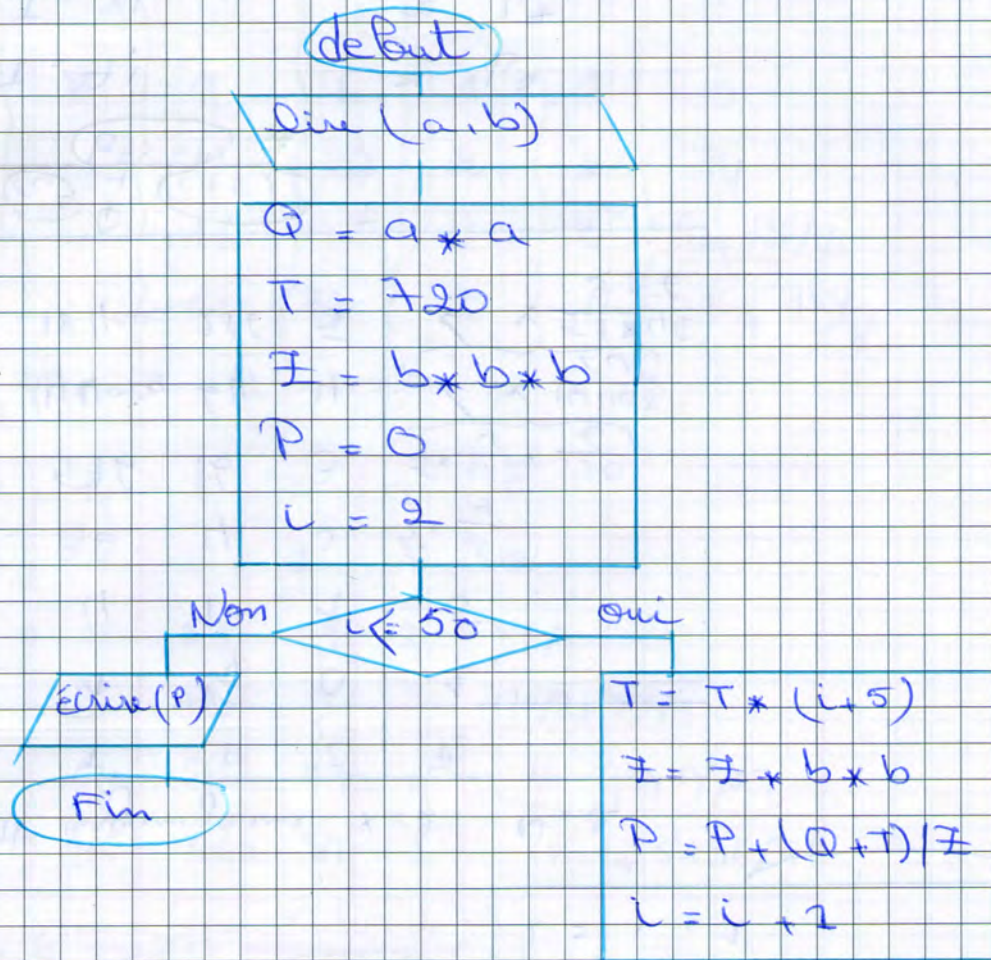 debut
lire (a, b)
Q = a * a
T = 720
Z = b * b * b
P = 0
i = 2
Non
i <= 50
oui
Ecrire (P)
Fin
T = T * (i + 5)
Z = Z * b * b
P = P + (Q + T) / Z
i = i + 1